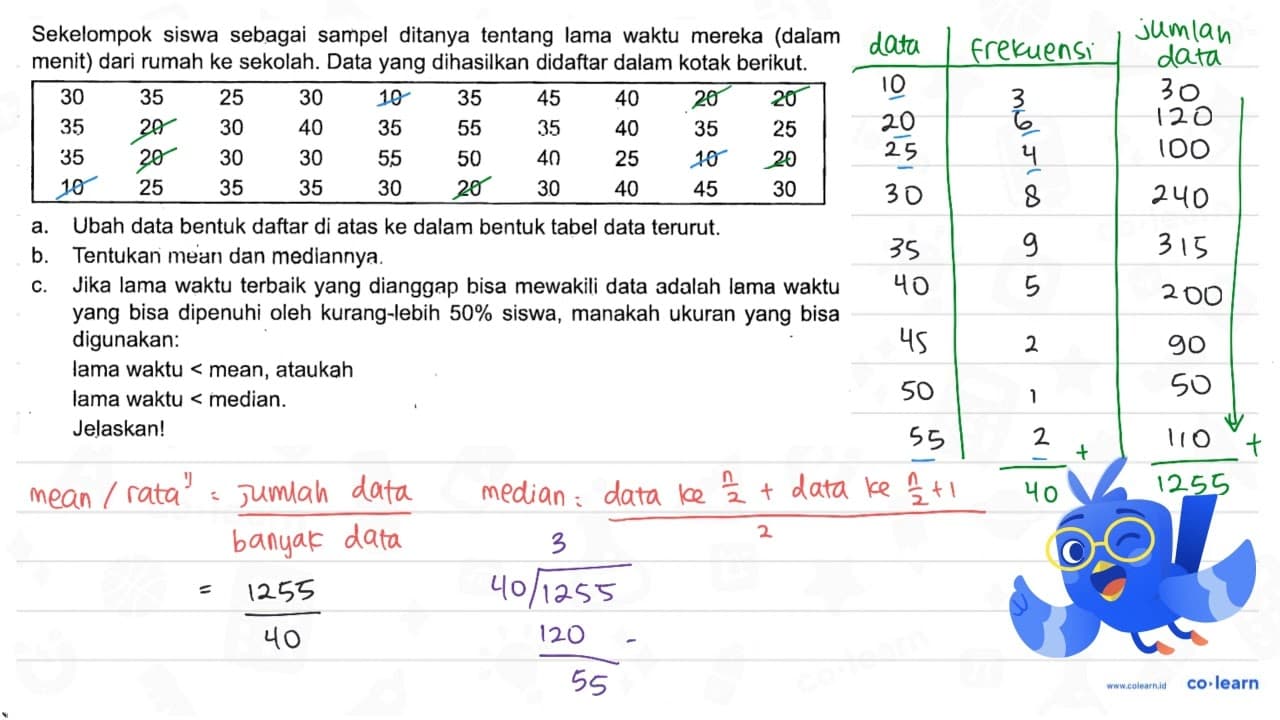 Sekelompok siswa sebagai sampel ditanya tentang lama waktu mereka (dalam
menit) dari rumah ke sekolah. Data yang dihasilkan didaftar dalam kotak berikut.
30 35 25 30 10 35 45 40 20 20
35 20 30 40 35 55 35 40 35 25
35 20 30 30 55 50 40 25 10 20
10 25 35 35 30 20 30 40 45 30
a. Ubah data bentuk daftar di atas ke dalam bentuk tabel data terurut.
b. Tentukan mean dan mediannya.
c. Jika lama waktu terbaik yang dianggap bisa mewakili data adalah lama waktu
yang bisa dipenuhi oleh kurang-lebih 50% siswa, manakah ukuran yang bisa
digunakan:
lama waktu < mean, ataukah
lama waktu < median.
Jelaskan!
data frekuensi jumlah data
10 3 30
20 6 120
25 4 100
30 8 240
35 9 315
40 5 200
45 2 90
50 1 50
55 2 + 110 +
40 1255
mean / rata" = jumlah data
banyak data
= 1255
40
median : data ke n/2 + data ke n/2 + 1
2
3
40/1255
120 -
55
www.colearn.id co·learn